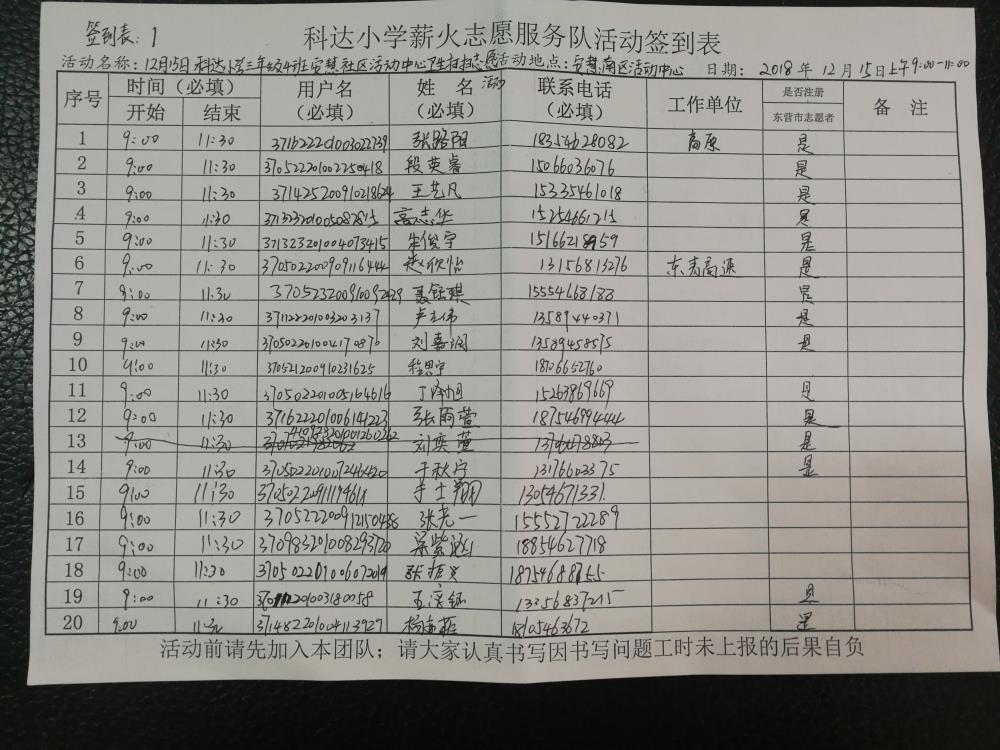 签到表: 1
科达小学薪火志愿服务队活动签到表
活动名称: 12月15日科达小学三年级4班安慧社区活动中心卫生打扫志愿活动 活动地点: 安慧南区活动中心 日期: 2018年12月15日上午9:00-11:00
序号 时间(必填) 开始 结束 用户名(必填) 姓名(必填) 联系电话(必填) 工作单位 是否注册东营市志愿者 备注
1 9:00 11:30 371622201003022739 张路阳 18354628082 高原 是
2 9:00 11:30 370522201002250418 段英睿 15066036076 是
3 9:00 11:30 371425200910218624 王艺凡 15335461018 是
4 9:00 11:30 371323201005082815 高志华 15254661215 是
5 9:00 11:30 371323201004073415 朱俊宇 是
6 9:00 11:30 370502200909116444 赵欣怡 13156813276 东青高速 是
7 9:00 11:30 聂钰琪 15554668188 是
8 9:00 11:30 371122201003203137 卢主伟 13589440371 是
9 9:00 11:30 370502201004170876 刘嘉润 13589458575 是
10 9:00 11:30 370521200910231625 程思宇 18706652760
11 9:00 11:30 370502201005164616 15263869669 是
12 9:00 11:30 371622201006141223 张雨萱 18754699444 是
13 9:00 11:30 刘奕萱 是
14 9:00 11:30 于秋宁 13176603375 是
15 9:00 11:30 于士翔 13054671331
16 9:00 11:30 张尧一 15552722289
17 9:00 11:30 370983201008293720 梁紫涵 18854627718
18 9:00 11:30 370502201006072019 张振兴
19 9:00 11:30 13356837215 是
20 9:00 11:30 371482201004113927 18105463672 是
活动前请先加入本团队;请大家认真书写因书写问题工时未上报的后果自负